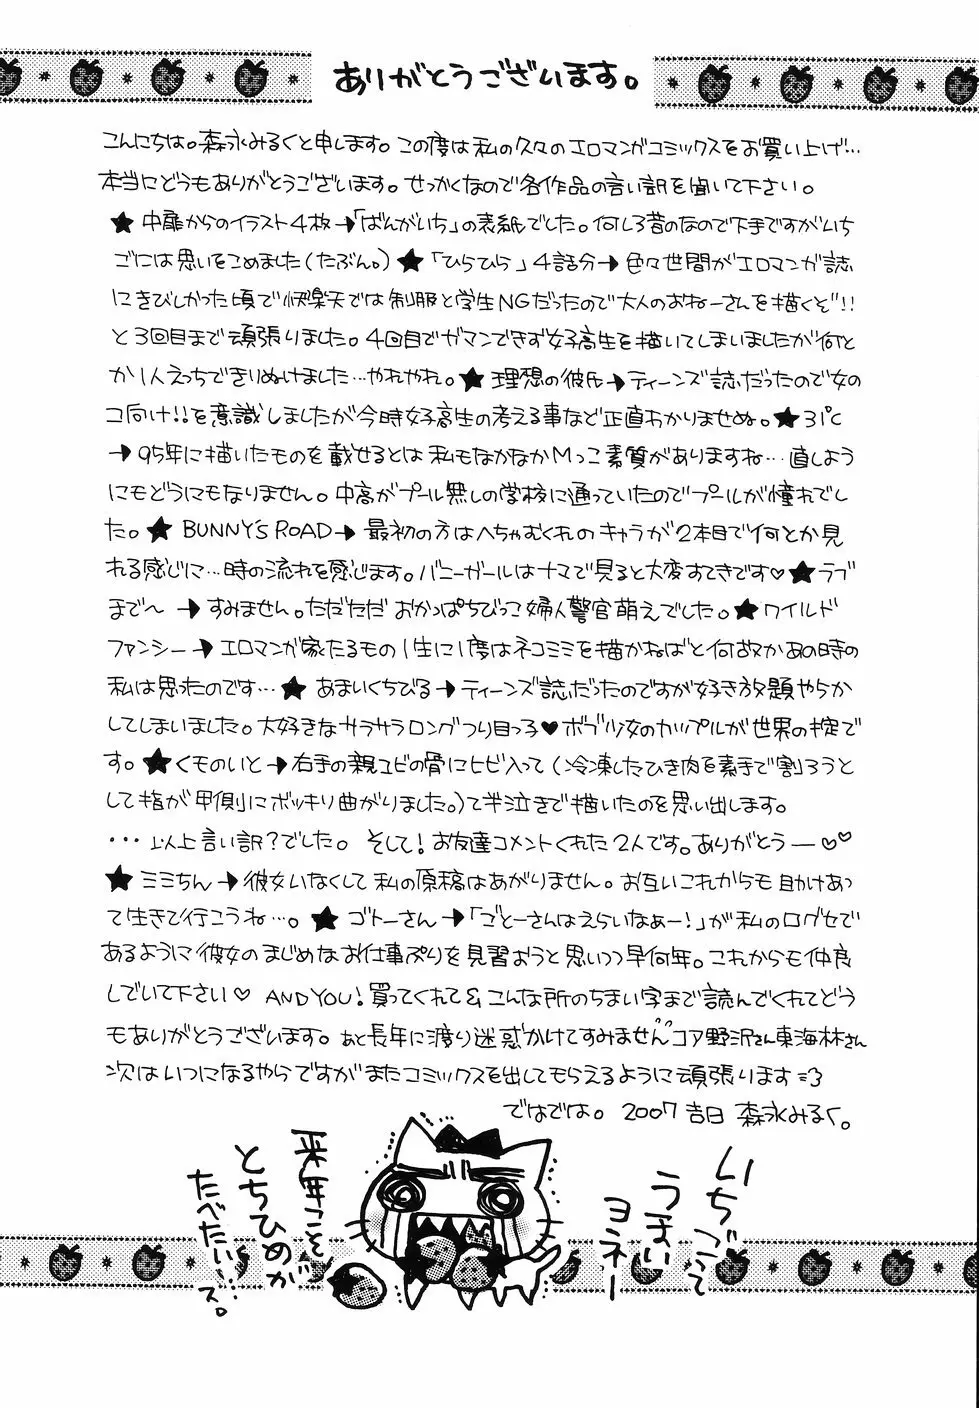 ありがとうございます。
こんにちは。森永みるくと申します。この度は私の久々のエロマンガコミックスをお買い上げ…
本当にどうもありがとうございます。せっかくなので各作品の言い訳を聞いて下さい。
★ 中扉からのイラスト4枚→「ばんがいち」の表紙でした。何しろ昔のなので下手ですがいち
ごには思いをこめました(たぶん。) ★ 「ひらひら」4話分→色々世間がエロマンガ誌
にきびしかった頃で快楽天では制服と学生NGだったので大人のおねーさんを描くぞ!!
と3回目まで頑張りました。4回目でガマンできず女子高生を描いてしまいましたが何と
か1人えっちできりぬけました…やれやれ。★ 理想の彼氏→ティーンズ誌だったので女の
コ向け!!を意識しましたが今時女子高生の考える事など正直わかりませぬ。★ 31℃
→95年に描いたものを載せるとは私もなかなかMっこ素質がありますね…直しよう
にもどうにもなりません。中高がプール無しの学校に通っていたのでプールが憧れでし
た。★ BUNNY'S ROAD→ 最初の方はへちゃむくれのキャラが2本目で何とか見
れる感じに…時の流れを感じます。バニーガールはナマで見ると大変すてきです♡★ラブ
まで〜 →すみません。ただただ おかっぱちびっこ婦人警官萌えでした。★ワイルド
ファンシー→エロマンガ家たるもの1生に1度はネコミミを描かねばと何故かあの時の
私は思ったのです…★ あまいくちびる→ティーンズ誌だったのですが好き放題やらか
してしまいました。大好きなサラサラロングつり目っ子♥ボブ少女のカップルが世界の掟で
す。★くものいと→右手の親ユビの骨にヒビ入って(冷凍したひき肉を素手で割ろうと
して指が甲側にボッキリ曲がりました。)て半泣きで描いたのを思い出します。
・・・以上言い訳?でした。 そして!お友達コメントくれた2人です。ありがとうー♡♡
★ ミミちん→彼女いなくして私の原稿はあがりません。お互いこれからも助けあっ
て生きて行こうね…。★ ゴトーさん→「ごとーさんはえらいなぁー!」が私の口グセで
あるように彼女のまじめなお仕事ぷりを見習おうと思いつつ早何年。これからも仲良
しでいて下さい♡ AND YOU!買ってくれて&こんな所のちまい字まで読んでくれてどう
もありがとうございます。あと長年に渡り迷惑かけてすみません コア野沢さん東海林さん
次はいつになるやらですがまたコミックスを出してもらえるように頑張ります=3
ではでは。2007 吉日 森永みるく。
いちごって
うまい
ヨネー
来年こそ
とちひめが
たべたいー…ス。